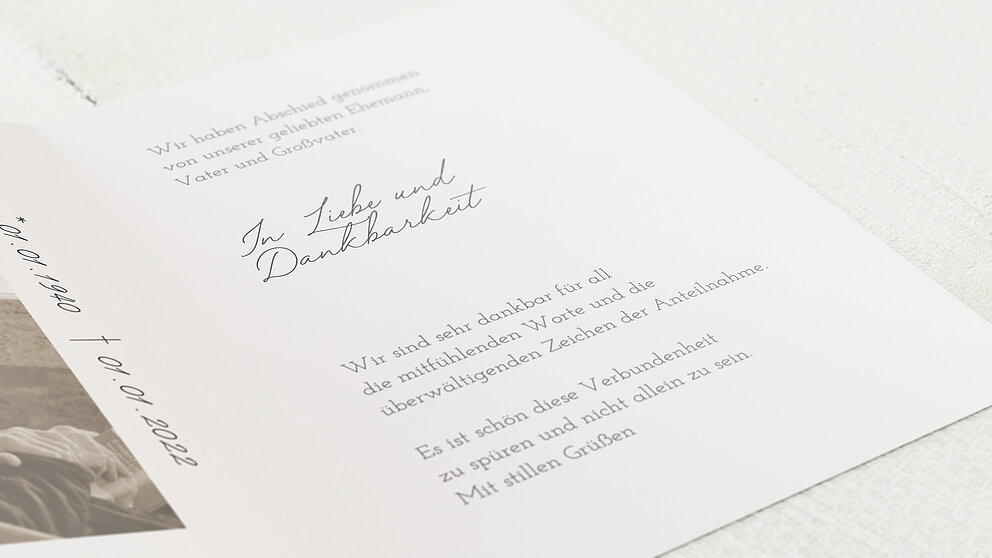 *01.01.1940 †01.01.2022
Wir haben Abschied genommen
von unserer geliebten Ehemann,
Vater und Großvater.
In Liebe und
Dankbarkeit
Wir sind sehr dankbar für all
die mitfühlenden Worte und die
überwältigenden Zeichen der Anteilnahme.
Es ist schön diese Verbundenheit
zu spüren und nicht allein zu sein.
Mit stillen Grüßen